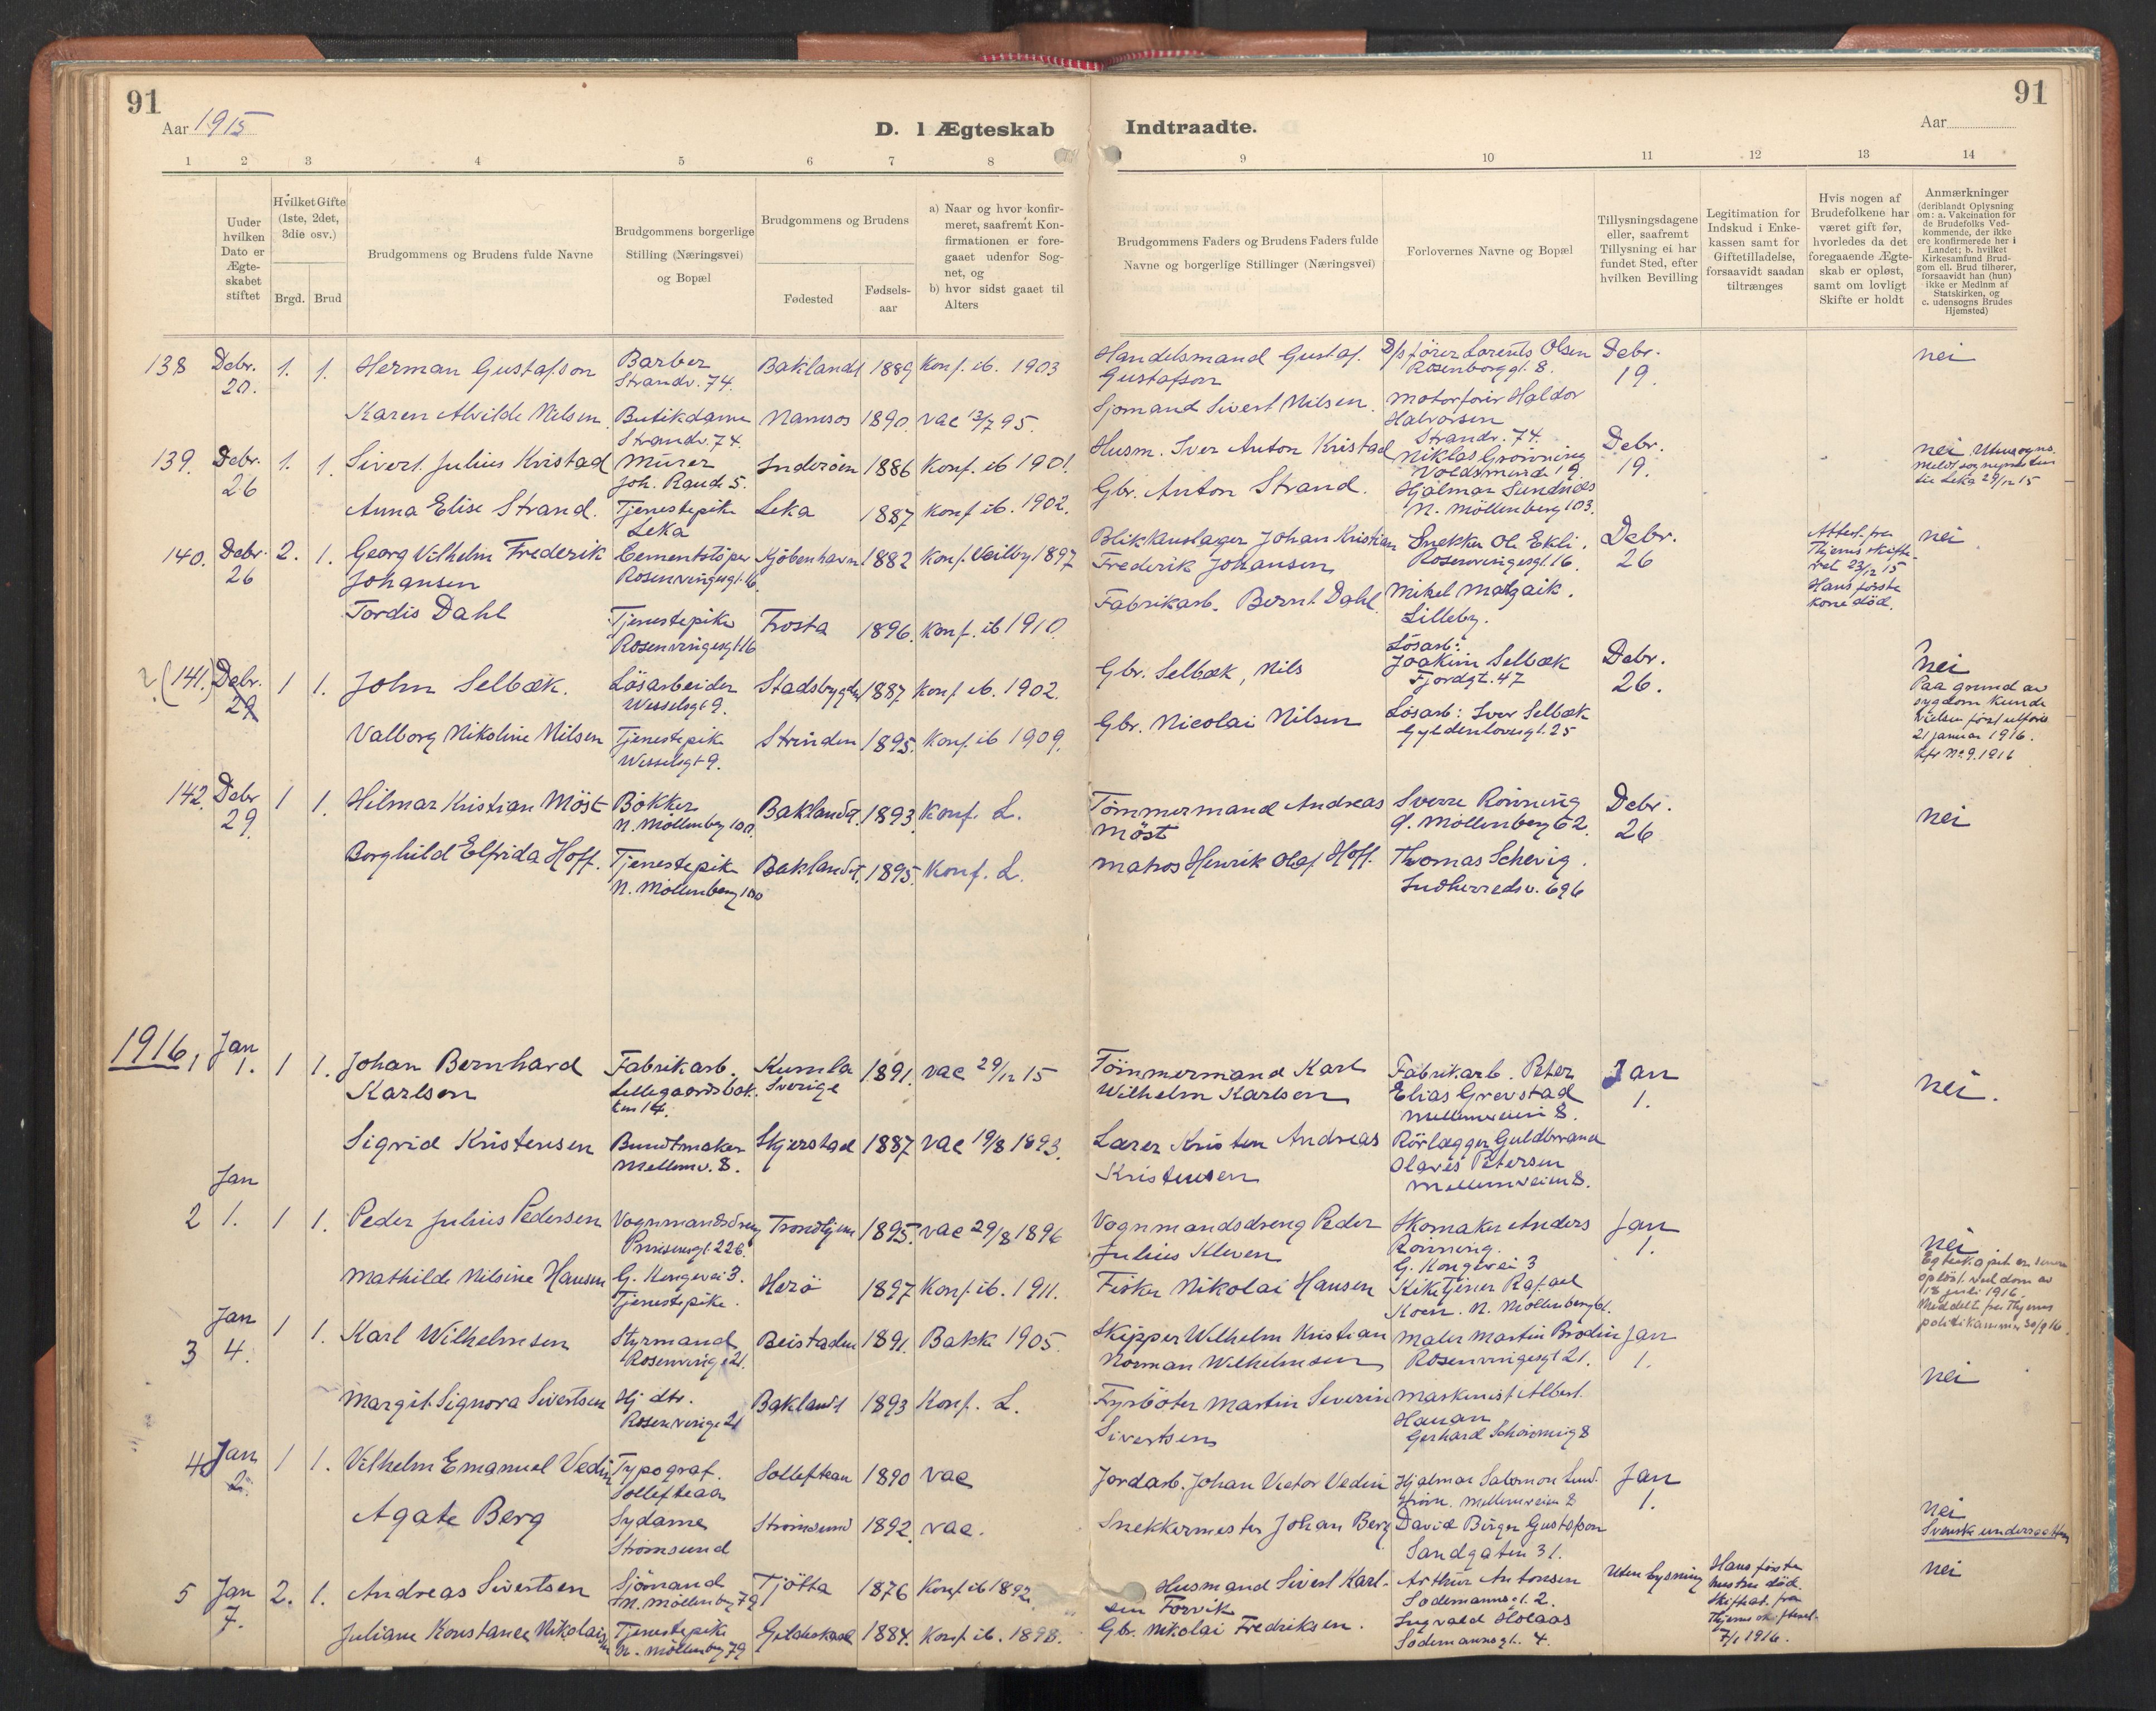 91
91
Aar 1915
D. I Ægteskab Indtraadte.
Aar
1 2 3 4 5 6 7 8 9 10 11 12 13 14
Uuder hvilken Dato er Ægteskabet stiftet
Hvilket Gifte (1ste, 2det, 3die osv.)
Brgd. Brud
Brudgommens og Brudens fulde Navne
Brudgommens borgerlige Stilling (Næringsvei) og Bopæl
Brudgommens og Brudens
Fødested
Fødsels-aar
a) Naar og hvor konfirmeret, saafremt Konfirmationen er foregaaet udenfor Sognet, og
b) hvor sidst gaaet til Alters
Brudgommens Faders og Brudens Faders fulde Navne og borgerlige Stillinger (Næringsvei)
Forlovernes Navne og Bopæl
Tillysningsdagene eller, saafremt Tillysning ei har fundet Sted, efter hvilken Bevilling
Legitimation for Indskud i Enkekassen samt for Giftetilladelse, forsaavidt saadan tiltrænges
Hvis nogen af Brudefolkene har været gift før, hvorledes da det foregaaende Ægteskab er opløst, samt om lovligt Skifte er holdt
Anmærkninger (deriblandt Oplysning om: a. Vakcination for de Brudefolks Vedkommende, der ikke ere konfirmerede her i Landet; b. hvilket Kirkesamfund Brudgom ell. Brud tilhører, forsaavidt han (hun) ikke er Medlnm af Statskirken, og c. udensogns Brudes Hjemsted)
138 Debr. 20. 1. 1. Herman Gustafson Barber Strandv. 74. Baklandt 1889 Konf. ib. 1903 Handelsmand Gustaf Gustafson D/s fører Lorents Olsen Rosenborggt. 8. Debr. 19. nei
Karen Alvilde Nilsen. Butikdame Strandv. 74. Namsos 1890. vac 13/7 95. Sjømand Sivert Nilsen. Motorfører Haldor Halvorsen Strandv. 74.
139. Debr. 26 1. 1. Sivert Julius Kristad Murer Joh. Rands 5. Inderøen 1886 Konf. ib 1901. Husm. Iver Anton Kristad Niklas Grønning Voldsminde 19. Debr. 19. nei Utensogns. Meldt sognepresten til Leka 29/12 15
Anna Elise Strand. Tjenestepike Leka Leka 1887 Konf ib. 1902. Gbr. Anton Strand. Hjalmar Sundnes N. Möllenberg 103.
140. Debr. 26 2. 1. Georg Vilhelm Frederik Johansen Cementstøper Rosenvingesgt. 16. Kjöbenhavn 1882 Konf. Veilby 1897 Blikkenslager Johan Kristian Frederik Johansen Snekker Ole Ekli. Rosenvingesgt. 16. Debr. 26 Attest fra Thjems skifteret 23/12 15 Hans første kone död. nei
Tordis Dahl Tjenestepike Rosenvingesgt 16 Frosta 1896. Konf. ib 1910. Fabrikarb. Bernt Dahl. Mikel Matzaik. Lilleby.
? (141.) Debr. 29 1 1. John Selbæk. Lösarbeider Wesselsgt 9. Stadsbygden 1887 Konf ib. 1902. Gbr. Selbæk, Nils Lösarb: Joakim Selbæk Fjordgt. 47 Debr. 26. nei Paa grund av sygdom kunde vielsen først utføres 21 januar 1916. Kfr No 9. 1916
Valborg Nikoline Nilsen Tjenestepike Wesselsgt 9. Strinden 1895. Konf. ib 1909. Gbr. Nicolai Nilsen Lösarb: Iver Selbæk Gyldenlövesgt. 25
142. Debr 29. 1 1. Hilmar Kristian Möst Bökker N. Möllenberg 100. Baklandt. 1893. Konf. L. Tömmermand Andreas Möst Sverre Rönning Ø. Möllenberg 62. Debr. 26 nei
Borghild Elfrida Hoff. Tjenestepike N. Möllenberg 100 Baklandt. 1895. Konf. L. Matros Henrik Olaf Hoff. Thomas Schevig. Indherredsv. 69b
1916, Jan 1. 1 1. Johan Bernhard Karlsen Fabrikarb. Lillegaardsbakken 14. Kumla Sverige 1891. vac 29/12 15 Tömmermand Karl Wilhelm Karlsen Fabrikarb. Peter Elias Grevstad Mellemveien 8. Jan 1. nei.
Sigrid Kristensen Buntmaker Mellemv. 8. Skjerstad 1887 vac 19/8 1893. Lærer Kristen Andreas Kristensen Rörlægger Guldbrand Olaves Petersen Mellemveien 8.
2 Jan 1. 1 1. Peder Julius Pedersen Vognmandsdreng Prinsensgt. 22b. Trondhjem 1895. vac 29/8 1896 Vognmandsdreng Peder Julius Kleven Skomaker Anders Rönning. G. Kongevei 3 Jan 1. nei Egteskapet er senere opløst ved dom av 18 juli 1916. Meddelt fra Thjems politikammer 30/9 16.
Mathilde Nilsine Hansen G. Kongevei 3. Tjenestepike. Herö 1897 Konf. ib. 1911. Fisker Nikolai Hansen Rafael N. Möllenberg
3 Jan 4. 1 1. Karl Wilhelmsen Styrmand Rosenvinge 21. Beistaden 1891. Bakke 1905. Skipper Wilhelm Kristian Norman Wilhelmsen Maler Martin Brodin Rosenvingesgt 21. Jan 1. nei
Margit Signora Sivertsen Hj dtr. Rosenvinge 21 Baklandt 1893 Konf. L. Fyrböter Martin Severin Sivertsen Maskinist Albert Hanan Gerhard Schönning 8
4 Jan 2. 1 1. Vilhelm Emanuel Vedin Typograf. Solleftean Solleftean 1890 vac Jordarb. Johan Victor Vedin Hjalmar Salomon Mellemveien 8 Jan 1. nei Svensk undersaatter
Agate Berg Sydame Strömsund Strömsund 1892. vac. Snekkermester Johan Berg David Birger Gustafson Sandgaten 31.
5 Jan 7. 2. 1. Andreas Sivertsen Sjömand N. Möllenberg 79 Tjötta 1876 Konf ib 1892. Husmand Sivert Karlsen Forvik Arthur Antonsen Sodemannsgt. 2. Uten lysning Hans første hustru død. Skifteat. fra Thjems skifteret 7/1 1916. nei
Juliane Konstance Nikolaisen Tjenestepike N. Möllenberg 79 Gildeskaal 1884. Konf. ib. 1898. Gbr. Nikolai Fredriksen. Ingvald Holaas Sodemannsgt. 4.